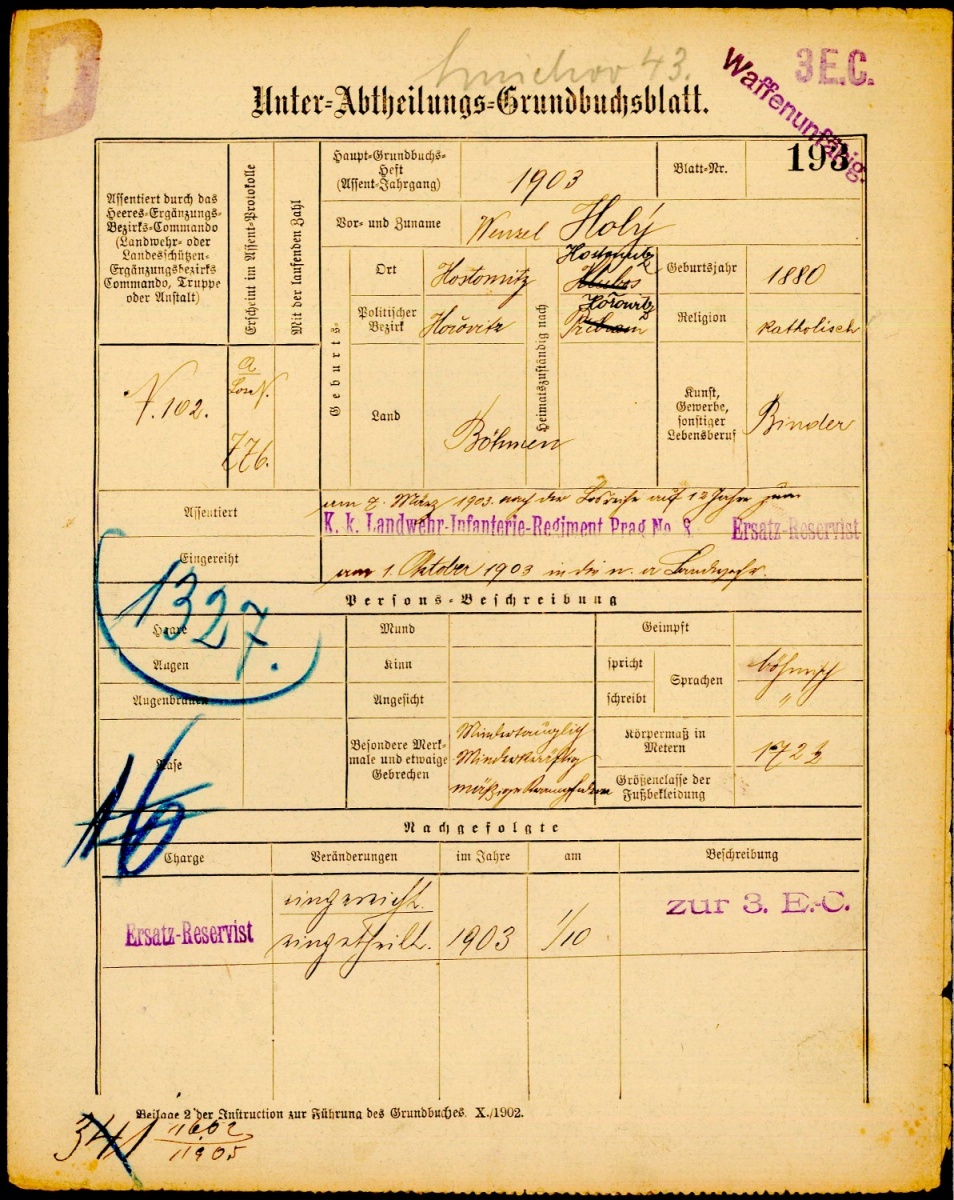 Smichov 43.
3 E.C.
Waffenunfähig.
Unter-Abtheilungs-Grundbuchsblatt.
Assentiert durch das
Heeres-Ergänzungs-
Bezirks-Commando
(Landwehr- oder
Landesschützen-
Ergänzungsbezirks
Commando, Truppe
oder Anstalt)
Erscheint im Assent-Protokolle
Mit der laufenden Zahl
Haupt-Grundbuchs-
Heft
(Assent-Jahrgang)
1903
Blatt-Nr.
193
Vor- und Zuname
Wenzel Holý
Geburts-
Ort
Hostomitz
Heimatszuständig nach
Hostomitz
Geburtsjahr
1880
Politischer
Bezirk
Hořovitz
Hořowitz
Přibram
Religion
katholisch
Land
Böhmen
Kunst,
Gewerbe,
sonstiger
Lebensberuf
Binder
N. 102.
a
776.
Assentiert
am 7. März 1903 nach der Losreihe auf 12 Jahre zum
K. k. Landwehr-Infanterie-Regiment Prag No. 8 Ersatz-Reservist
Eingereiht
am 1. Oktober 1903 in die n. a. Landwehr.
1327.
Persons-Beschreibung
Haare
Mund
Geimpft
Augen
Kinn
spricht
Sprachen
böhmisch
Augenbrauen
Angesicht
schreibt
"
Nase
Besondere Merk-
male und etwaige
Gebrechen
Mindertauglich
Minderkräftig
mäßige Krampfadern
Körpermaß in
Metern
172½
Größenclasse der
Fußbekleidung
16
Nachgefolgte
Charge
Veränderungen
im Jahre
am
Beschreibung
Ersatz-Reservist
eingereiht.
eingetheilt.
1903
1/10
zur 3. E.-C.
Beilage 2 der Instruction zur Führung des Grundbuches. X./1902.
341
1602
11905